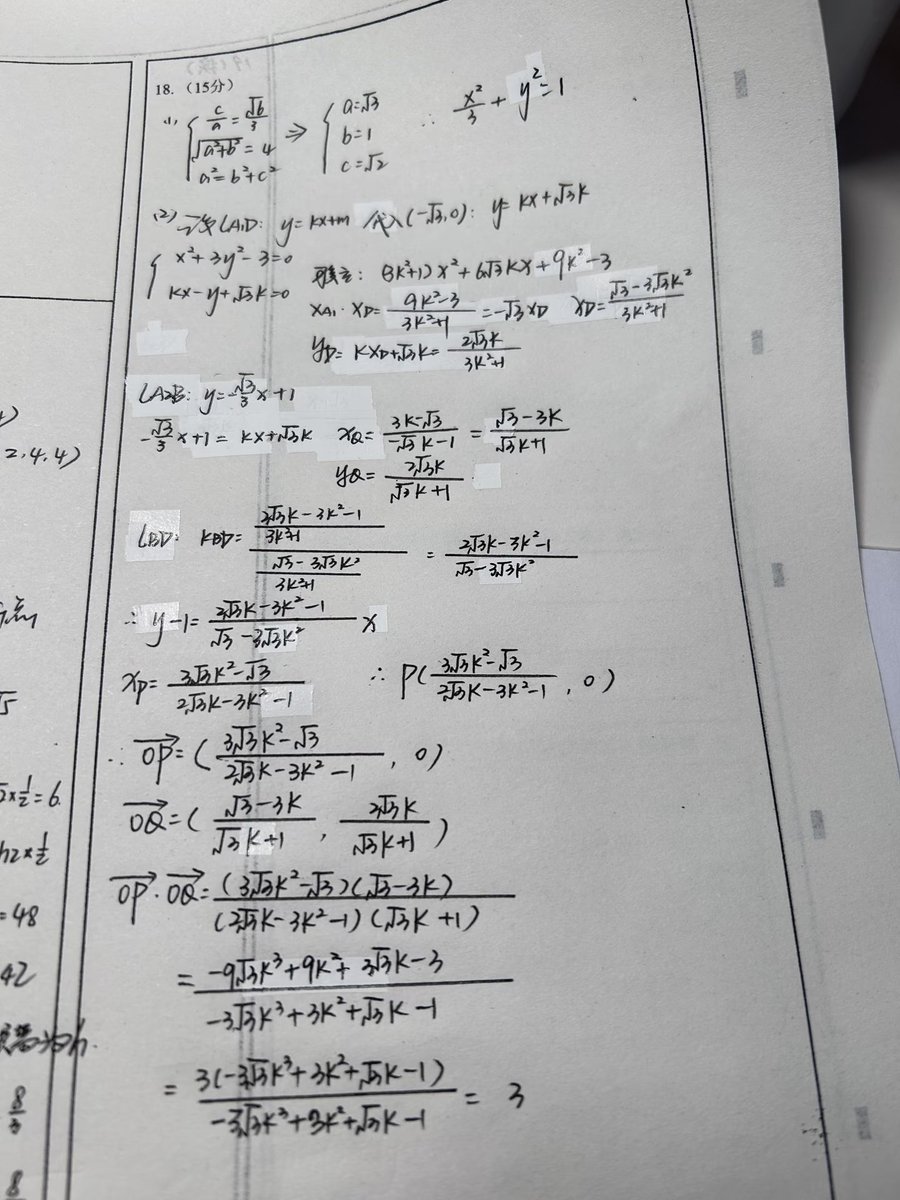 18. (15分)
(1) { c/a = √6/3
√(a²+b²) = 4
a² = b²+c²
⇒ { a=√3
b=1
c=√2
∴ x²/3 + y² = 1
(2) 设 lA₁D: y=kx+m 代入(-√3,0): y=kx+√3k
{ x²+3y²-3=0
kx-y+√3k=0
联立: (3k²+1)x²+6√3kx+9k²-3
xA₁·xD = (9k²-3)/(3k²+1) = -√3xD xD = (√3-3√3k²)/(3k²+1)
yD = kxD+√3k = 2√3k/(3k²+1)
lA₂B: y=-√3/3x+1
-√3/3x+1 = kx+√3k xQ = (3k-√3)/(-√3k-1) = (√3-3k)/(√3k+1)
yQ = 2√3k/(√3k+1)
lBD: kBD = ((2√3k-3k²-1)/(3k²+1))/((√3-3√3k²)/(3k²+1)) = (2√3k-3k²-1)/(√3-3√3k²)
∴ y-1 = (2√3k-3k²-1)/(√3-3√3k²) x
xP = (3√3k²-√3)/(2√3k-3k²-1) ∴ P((3√3k²-√3)/(2√3k-3k²-1), 0)
∴ OP→ = ((3√3k²-√3)/(2√3k-3k²-1), 0)
OQ→ = ((√3-3k)/(√3k+1), 2√3k/(√3k+1))
OP→·OQ→ = (3√3k²-√3)(√3-3k)/(2√3k-3k²-1)(√3k+1)
= (-9√3k³+9k²+3√3k-3)/(-3√3k³+3k²+√3k-1)
= 3(-3√3k³+3k²+√3k-1)/(-3√3k³+3k²+√3k-1) = 3
2,4,4)
×1/2=6.
×1/2
=48
42
8/3
8